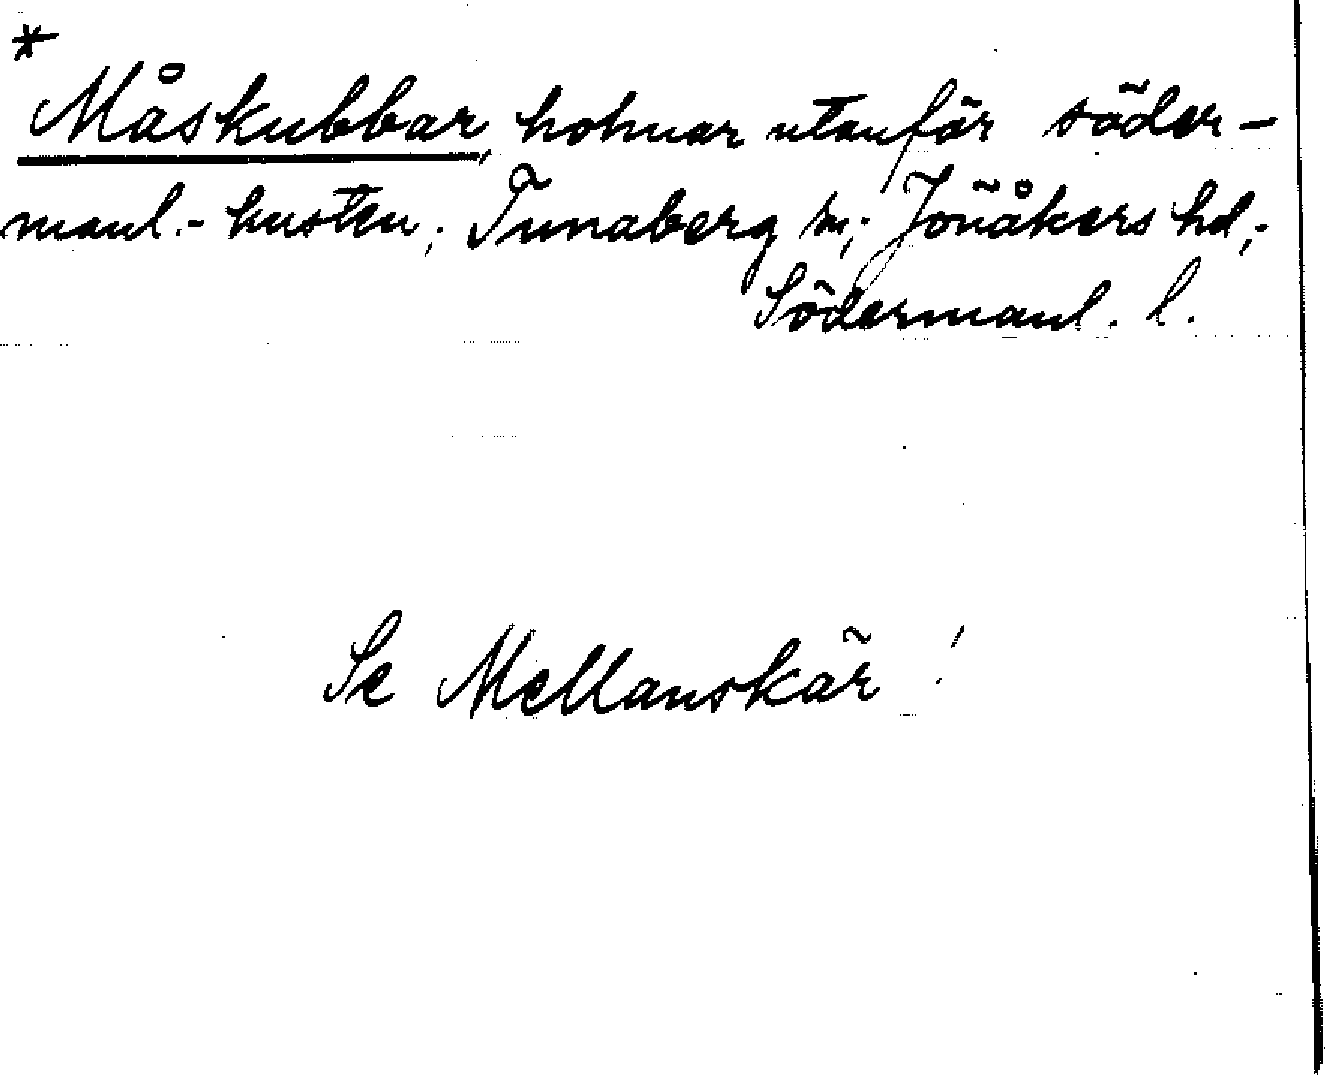 *
Måskubbar, holmar utanför söder-
manl.-kusten; Tunaberg sn; Jönåkers hd;
Södermanl. l.
Se Mellanskär!